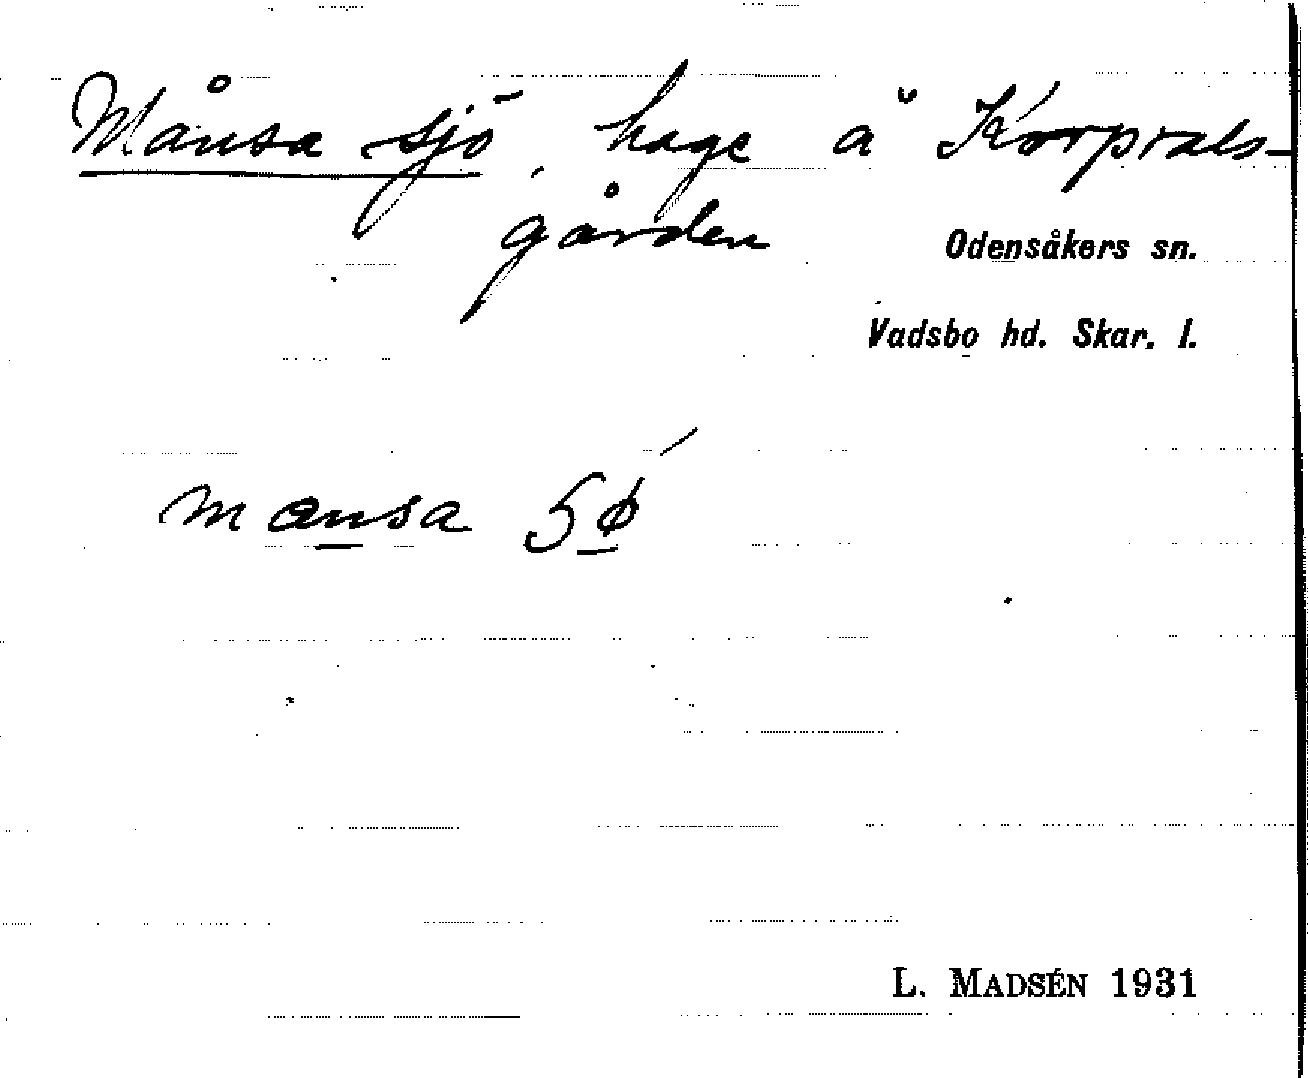 Månsa sjö, hage å Korprals-
gården
Odensåkers sn.
Vadsbo hd. Skar. l.
mansa
L. MADSÉN 1931